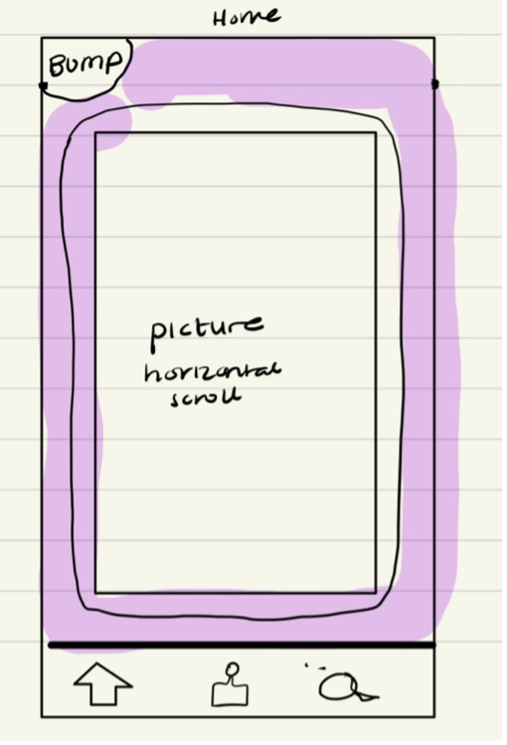 Home
Bump
picture
horizontal
scroll